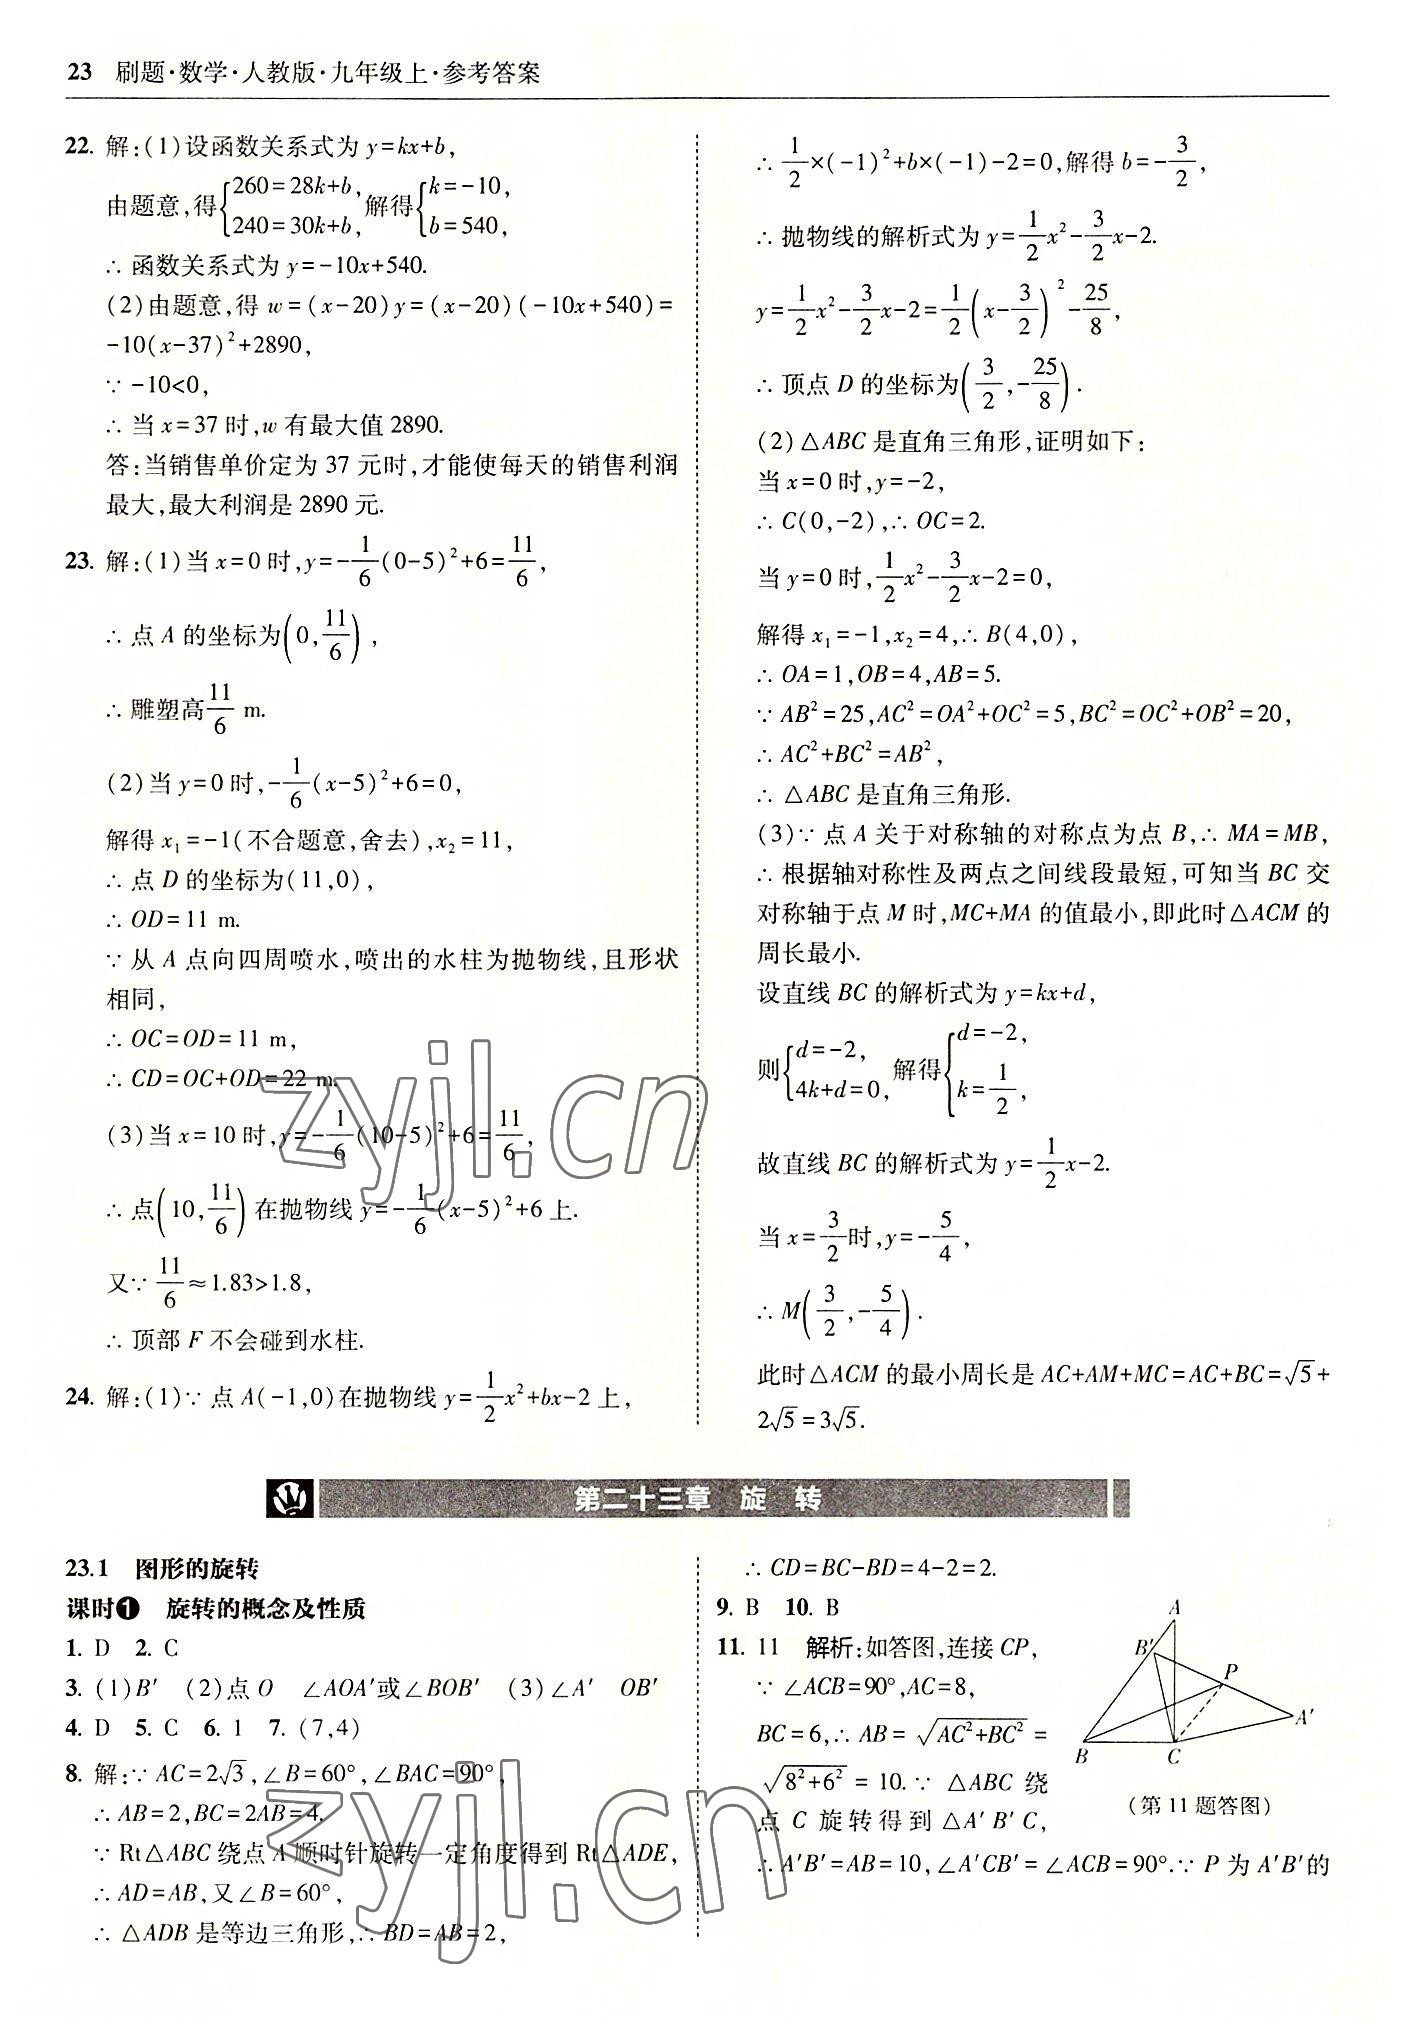 23 刷题·数学·人教版·九年级上·参考答案
22. 解:(1)设函数关系式为 y=kx+b,
由题意,得{260=28k+b, 240=30k+b, 解得{k=-10, b=540,
∴ 函数关系式为 y=-10x+540.
(2)由题意,得 w=(x-20)y=(x-20)(-10x+540)=
-10(x-37)²+2890,
∵ -10<0,
∴ 当 x=37 时,w 有最大值 2890.
答:当销售单价定为 37 元时,才能使每天的销售利润
最大,最大利润是 2890 元.
23. 解:(1)当 x=0 时,y=-1/6(0-5)²+6=11/6,
∴ 点 A 的坐标为(0,11/6),
∴ 雕塑高11/6 m.
(2)当 y=0 时,-1/6(x-5)²+6=0,
解得 x₁=-1(不合题意,舍去),x₂=11,
∴ 点 D 的坐标为(11,0),
∴ OD=11 m.
∵ 从 A 点向四周喷水,喷出的水柱为抛物线,且形状
相同,
∴ OC=OD=11 m,
∴ CD=OC+OD=22 m.
(3)当 x=10 时,y=-1/6(10-5)²+6=11/6,
∴ 点(10,11/6)在抛物线 y=-1/6(x-5)²+6 上.
又∵ 11/6≈1.83>1.8,
∴ 顶部 F 不会碰到水柱.
24. 解:(1)∵ 点 A(-1,0)在抛物线 y=1/2x²+bx-2 上,
∴ 1/2×(-1)²+b×(-1)-2=0,解得 b=-3/2,
∴ 抛物线的解析式为 y=1/2x²-3/2x-2.
y=1/2x²-3/2x-2=1/2(x-3/2)²-25/8,
∴ 顶点 D 的坐标为(3/2,-25/8).
(2)△ABC 是直角三角形,证明如下:
当 x=0 时,y=-2,
∴ C(0,-2),∴ OC=2.
当 y=0 时,1/2x²-3/2x-2=0,
解得 x₁=-1,x₂=4,∴ B(4,0),
∴ OA=1,OB=4,AB=5.
∵ AB²=25,AC²=OA²+OC²=5,BC²=OC²+OB²=20,
∴ AC²+BC²=AB²,
∴ △ABC 是直角三角形.
(3)∵ 点 A 关于对称轴的对称点为点 B,∴ MA=MB,
∴ 根据轴对称性及两点之间线段最短,可知当 BC 交
对称轴于点 M 时,MC+MA 的值最小,即此时△ACM 的
周长最小.
设直线 BC 的解析式为 y=kx+d,
则{d=-2, 4k+d=0, 解得{d=-2, k=1/2,
故直线 BC 的解析式为 y=1/2x-2.
当 x=3/2时,y=-5/4,
∴ M(3/2,-5/4).
此时△ACM 的最小周长是 AC+AM+MC=AC+BC=√5+
2√5=3√5.
第二十三章 旋 转
23.1 图形的旋转
课时❶ 旋转的概念及性质
1. D 2. C
3. (1)B′ (2)点 O ∠AOA′或∠BOB′ (3)∠A′ OB′
4. D 5. C 6. 1 7. (7,4)
8. 解:∵ AC=2√3,∠B=60°,∠BAC=90°,
∴ AB=2,BC=2AB=4.
∵ Rt△ABC 绕点 A 顺时针旋转一定角度得到 Rt△ADE,
∴ AD=AB,又∠B=60°,
∴ △ADB 是等边三角形,∴ BD=AB=2,
∴ CD=BC-BD=4-2=2.
9. B 10. B
11. 11 解析:如答图,连接 CP,
∵ ∠ACB=90°,AC=8,
BC=6,∴ AB=√(AC²+BC²)=
√(8²+6²)=10.∵ △ABC 绕
点 C 旋转得到△A′B′C,
∴ A′B′=AB=10,∠A′CB′=∠ACB=90°.∵ P 为 A′B′的
A
B′
P
A′
B
C
(第 11 题答图)
zyjl.cn
zyjl.cn